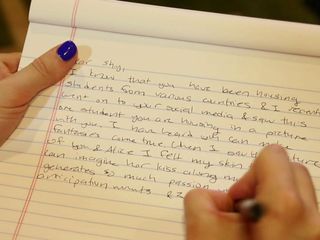 ar Shy,
I know that you have been housing
students from various countries & I recent
went on to your social media & saw this
one student you are housing in a picture
with you. I have heard will can make
fantasies come true. When I saw
of you & Alice I felt my skin
can imagine her kiss always m
generates so much passion
participation wants & I